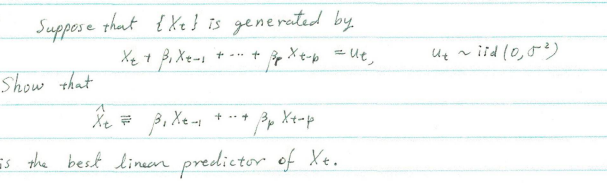 Suppose that {Xt} is generated by
Xt + β1 Xt-1 + ··· + βp Xt-p = ut, ut ~ iid (0, σ²)
Show that
X̂t ≡ β1 Xt-1 + ··· + βp Xt-p
is the best linear predictor of Xt.